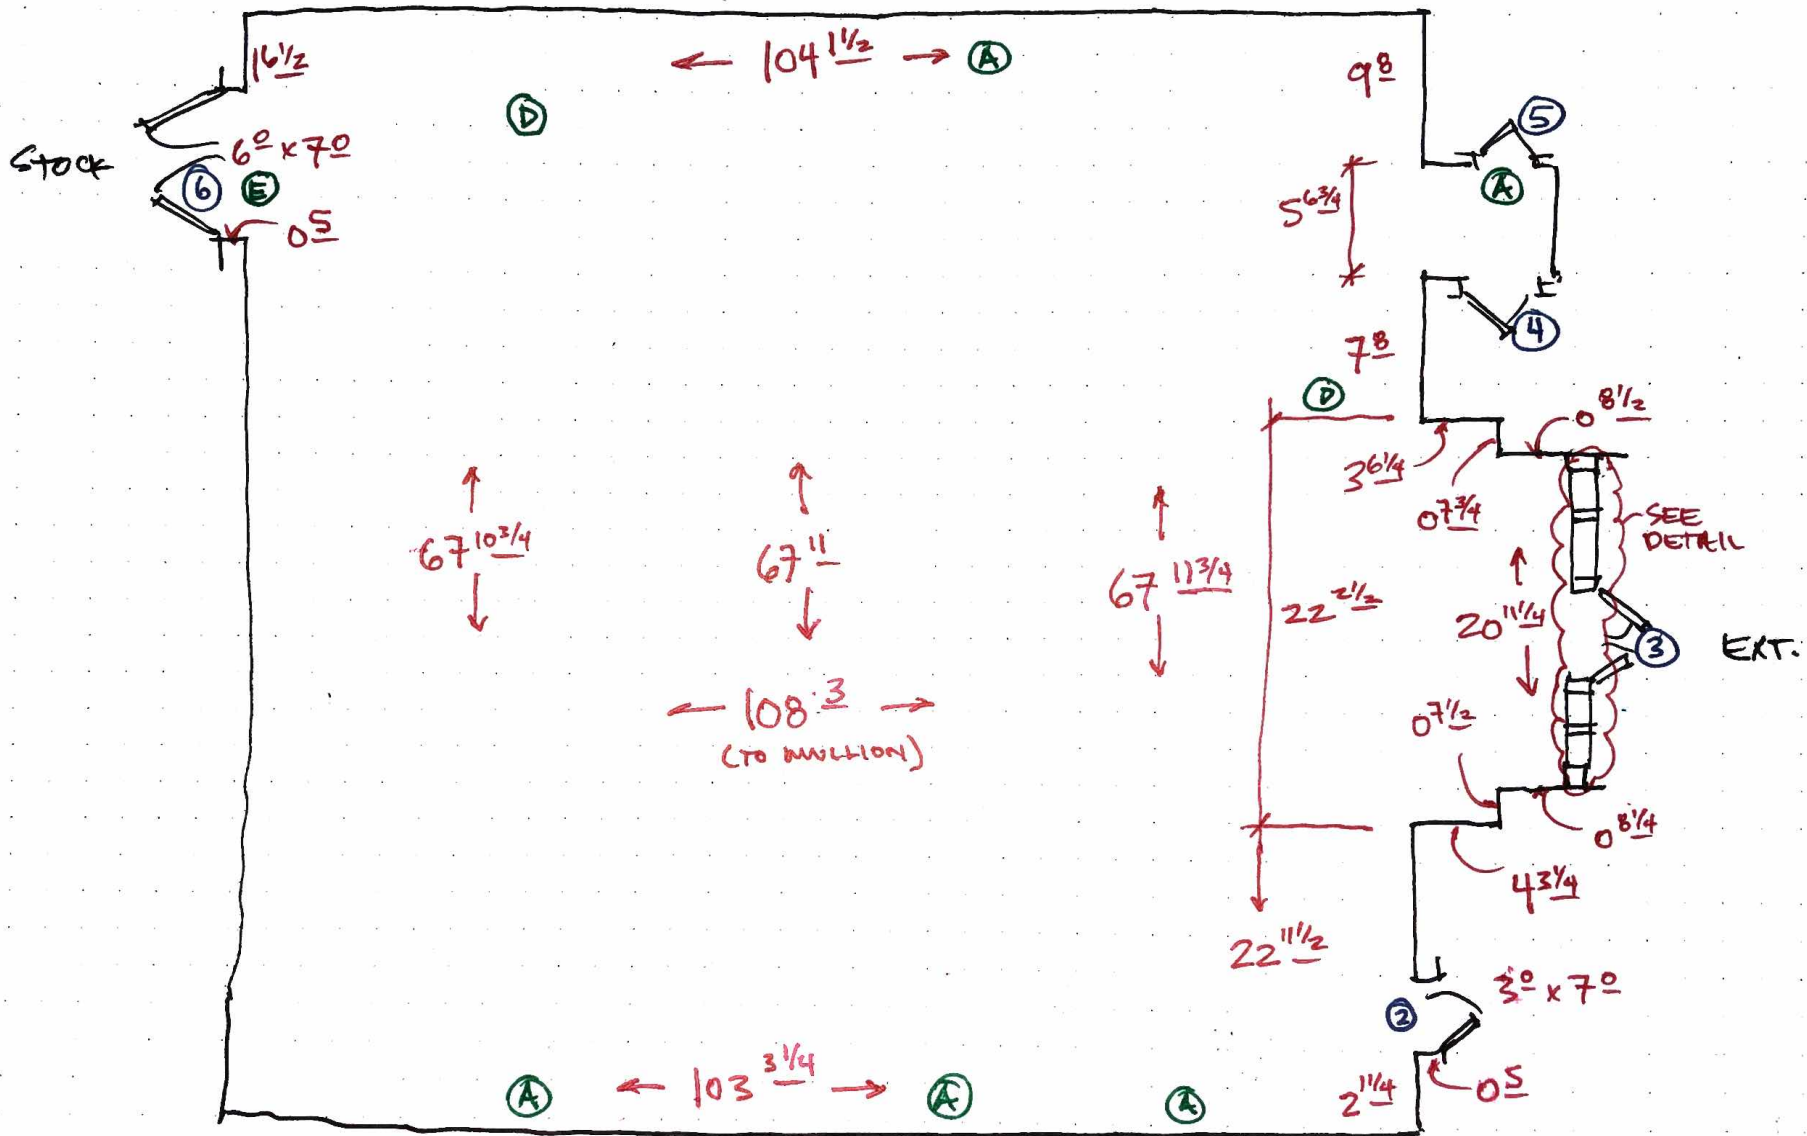 16 1/2
104 1 1/2
A
9 8
D
5
STOCK
6 0 x 7 0
6
E
A
0 5
5 6 3/4
4
7 8
D
0 8 1/2
3 6 1/4
0 7 3/4
SEE
DETAIL
67 10 3/4
67 11
67 11 3/4
22 2 1/2
20 11 1/4
3
EXT.
108 3
(TO MULLION)
0 7 1/2
0 8 1/4
4 3 1/4
22 11 1/2
3 0 x 7 0
2
103 3 1/4
A
A
A
2 11 1/4
0 5